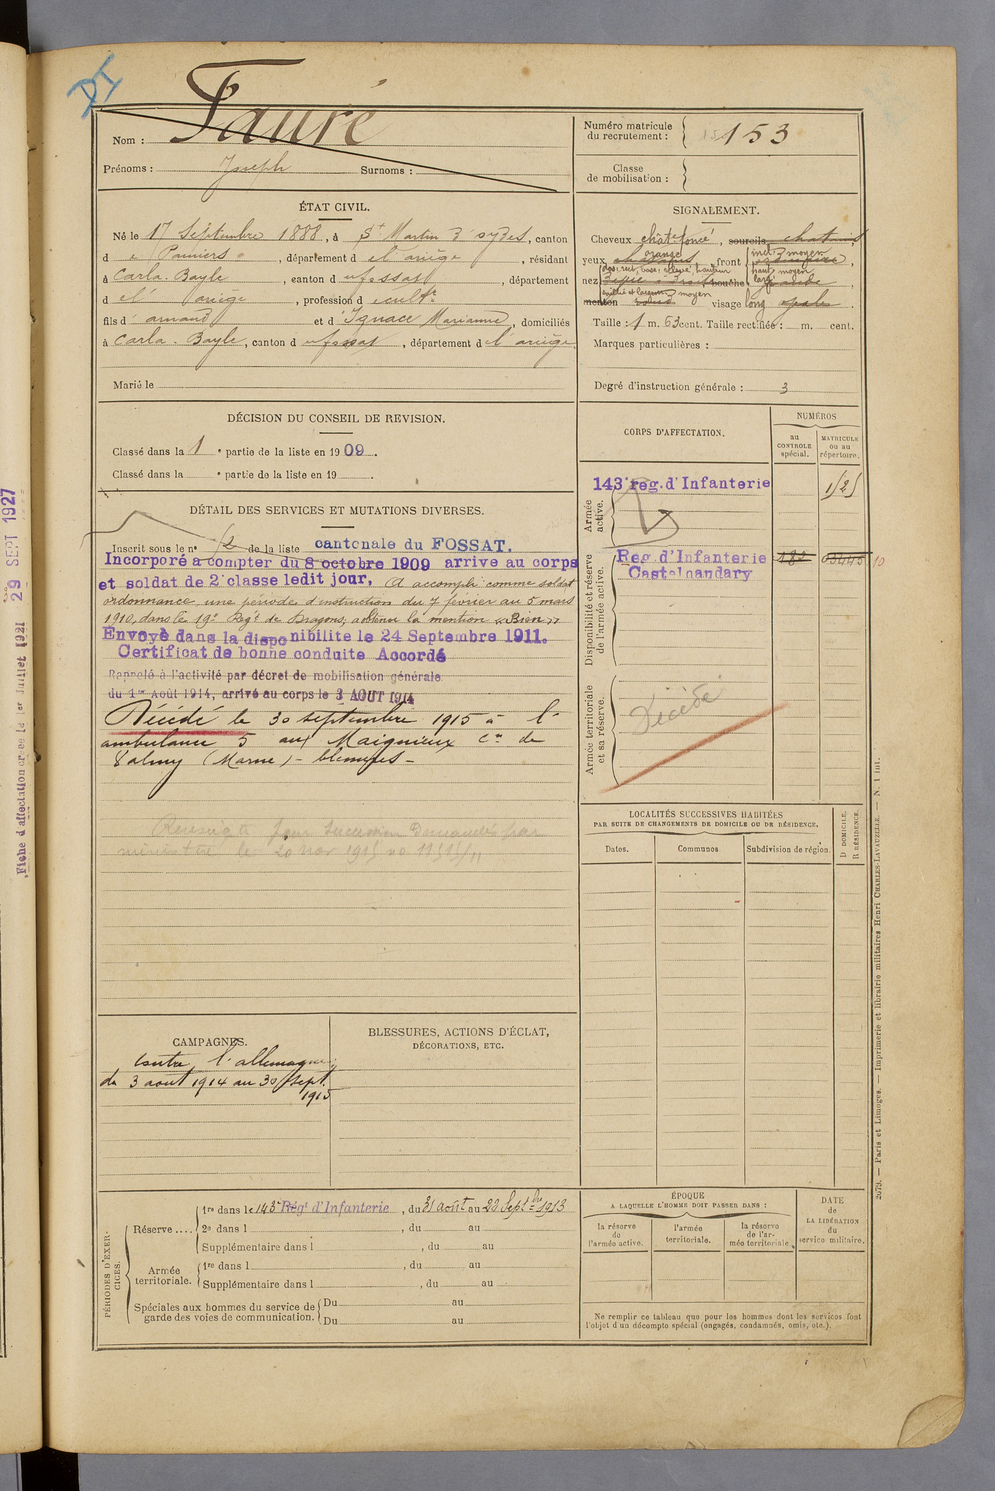 DI
Nom : Fauré
Prénoms : Joseph Surnoms :
Numéro matricule du recrutement : 153
Classe de mobilisation :
ÉTAT CIVIL.
Né le 17 Septembre 1888, à St Martin d'oydes, canton
d e Pamiers, département d el'ariège, résidant
à Carla-Bayle, canton d u fossat, département
d el' ariège, profession d e cultr
fils d' armand et d' Ignace Marianne, domiciliés
à Carla-Bayle, canton d u fossat, département d e l'ariège
Marié le
SIGNALEMENT.
Cheveux chât foncé, sourcils chatains
orange incl: moyen
yeux front
haut moyen
dos: rect, base: élevé, hauteur larg:
nez bouche
saillie et largeur moyen
menton visage long ovale
Taille : 1 m. 63 cent. Taille rectifiée : m. cent.
Marques particulières :
Degré d'instruction générale : 3
DÉCISION DU CONSEIL DE REVISION.
Classé dans la 1e partie de la liste en 1909.
Classé dans la e partie de la liste en 19 .
CORPS D'AFFECTATION.
NUMÉROS
au CONTROLE spécial.
MATRICULE ou au répertoire.
Armée active.
143e reg. d'Infanterie
Disponibilité et réserve de l'armée active.
Reg. d'Infanterie
Castelnaudary
10
Armée territoriale et sa réserve.
Décédé
DÉTAIL DES SERVICES ET MUTATIONS DIVERSES.
Inscrit sous le n° 12 de la liste cantonale du FOSSAT.
Incorporé à compter du 8 octobre 1909 arrive au corps
et soldat de 2e classe ledit jour, A accompli comme soldat
ordonnance une période d'instruction du 7 février au 5 mars
1910, dans le 19e Regt de Dragons, a obtenu la mention « Bien »
Envoyé dans la disponibilite le 24 Septembre 1911.
Certificat de bonne conduite Accordé
Rappelé à l'activité par décret de mobilisation générale
du 1er Août 1914, arrivé au corps le 3 AOUT 1914
Décédé le 30 septembre 1915 à l'
ambulance 5 aux Maigneux cne de
Valmy (Marne) - blessures -
Renseigts pour succession demandés par
ministre le 20 nov 1915
LOCALITÉS SUCCESSIVES HABITÉES
PAR SUITE DE CHANGEMENTS DE DOMICILE OU DE RÉSIDENCE.
Dates.
Communes
Subdivision de région.
D DOMICILE.
R RÉSIDENCE.
CAMPAGNES.
Contre l'allemagne
du 3 aout 1914 au 30 sept.
1915
BLESSURES, ACTIONS D'ÉCLAT,
DÉCORATIONS, ETC.
PÉRIODES D'EXERCICES.
Réserve ....
1re dans le 143e Régt d'Infanterie, du 31 août au 23 Septbre 1913
2e dans l , du au
Supplémentaire dans l , du au
Armée territoriale.
1re dans l , du au
Supplémentaire dans l , du au
Spéciales aux hommes du service de garde des voies de communication.
Du au
Du au
ÉPOQUE
A LAQUELLE L'HOMME DOIT PASSER DANS :
la réserve de l'armée active.
l'armée territoriale.
la réserve de l'armée territoriale
DATE
de
LA LIBÉRATION
du
service militaire.
Ne remplir ce tableau que pour les hommes dont les services font
l'objet d'un décompte spécial (engagés, condamnés, omis, etc.).
2679. — Paris et Limoges. — Imprimerie et librairie militaires Henri CHARLES-LAVAUZELLE. — N. 1 int.
Fiche d'affectation créée le 1er Juillet 1921
29 SEPT 1927